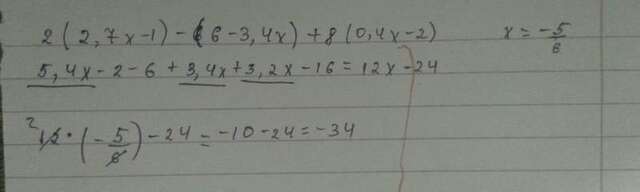 2(2,7x-1)-(6-3,4x)+8(0,4x-2) x=-5/6
5,4x-2-6+3,4x+3,2x-16=12x-24
12·(-5/6)-24=-10-24=-34